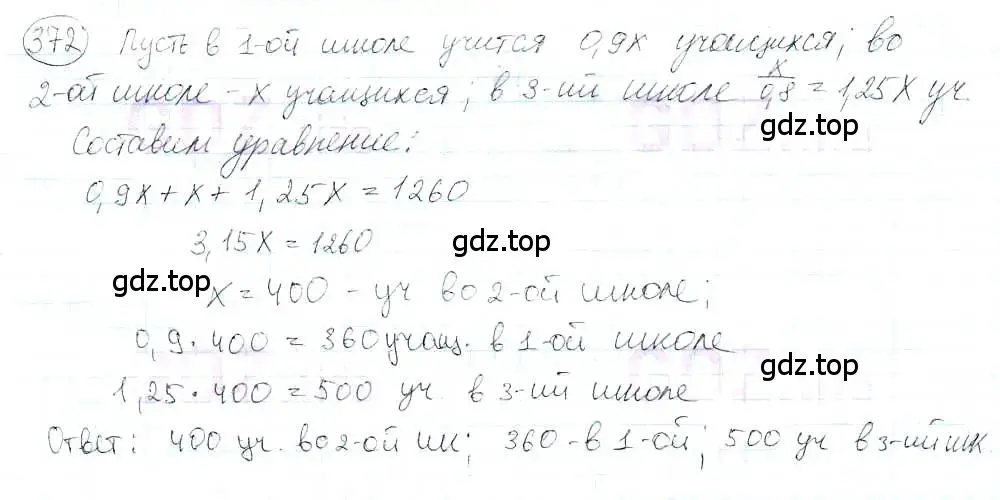 372) Пусть в 1-ой школе учится 0,9x учащихся; во
2-ой школе - x учащихся; в 3-ий школе x/0,8 = 1,25x уч.
Составим уравнение:
0,9x + x + 1,25x = 1260
3,15x = 1260
gdz.top
x = 400 - уч во 2-ой школе;
gdz.top
0,9 · 400 = 360 учащ. в 1-ой школе
gdz.top
1,25 · 400 = 500 уч. в 3-ий школе
Ответ: 400 уч. во 2-ой шк; 360 - в 1-ой; 500 уч в 3-ий шк.
gdz.top